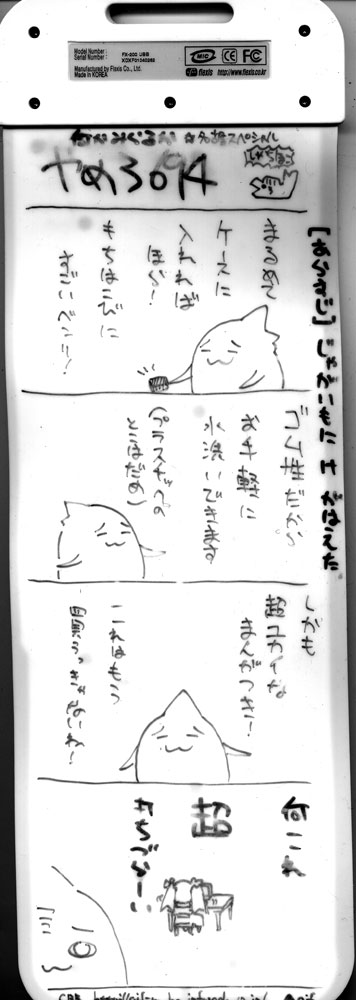 Model Number : FX-200 USB
Serial Number :
Manufactured by Flexis Co., Ltd.
Made in KOREA
MIC CE FC
flexis http://www.flexis.co.kr
スペシャル
やめろ
【あらすじ】じゃがいもに け がはえた
まるめて
ケースに
入れれば
ほら!
もちはこびに
すごいベンリ!
ゴム性だから
お手軽に
水洗いできます
(プラスチックの
とこはだめ)
しかも
超ユカイな
まんがつき!
これはもう
買うっきゃないわー!
何これ
超
打ちづらーい